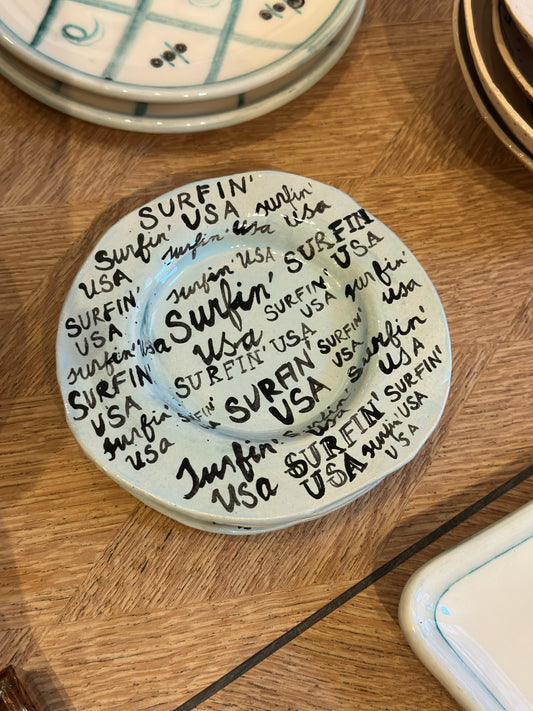 SURFIN'
USA
surfin'
usa
Surfin'
USA
surfin' usa
SURFIN'
USA
surfin
usa
surfin' usa
SURFIN'
USA
Surfin'
usa
SURFIN'
USA
surfin' usa
SURFIN'
USA
Surfin'
USA
SURFIN' USA
SURFIN'
USA
SURFIN'
USA
SURFIN'
USA
surfin'
usa
SURFIN
USA
SURFIN'
USA
Surfin'
USA
SURFIN'
USA
surfin'
USA